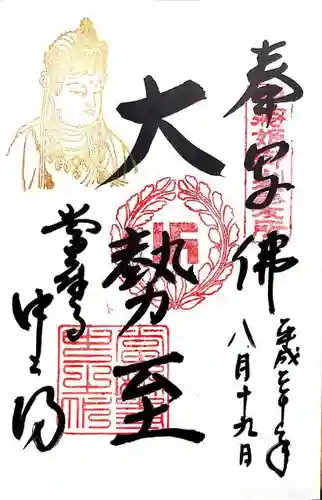 奉写佛
平成三十年
八月十九日
大勢至
當麻寺
中之坊